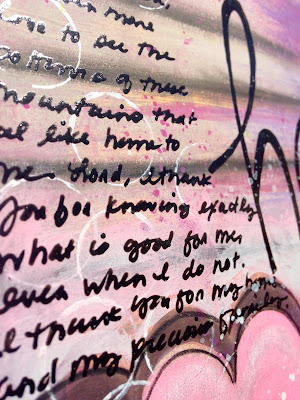 more
to see the
of these
mountains that
feel like home to
me. Lord, I thank
You for knowing exactly
what is good for me,
even when I do not.
I thank you for my home
and my precious family.